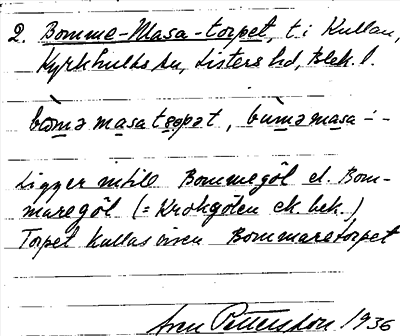 2. Bomme-Masa-torpet, t. i Kullan,
Kyrkhults sn, Listers hd, Blek. l.
bὼmə masatɷpət, bùməmasa- -
Ligger intill Bommegöl el. Bom-
maregöl (= Krokgölen ek. bek.)
Torpet kallas även Bommaretorpet
Sven Pettersson 1936